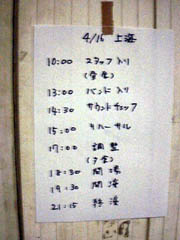 4/16 上海
10:00 スタッフ入り
(昼食)
13:00 バンド入り
14:30 サウンドチェック
15:00 リハーサル
17:00 調整
(夕食)
18:30 開場
19:30 開演
21:15 終演